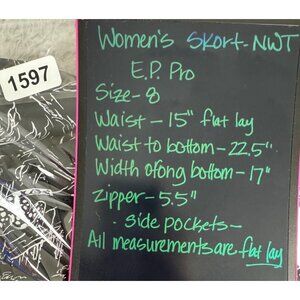 1597
Women's Skort-NWT
E.P. Pro
Size-8
Waist-15" flat lay
Waist to bottom-22.5"
Width along bottom-17"
Zipper-5.5"
- side pockets-
All measurements are flat lay